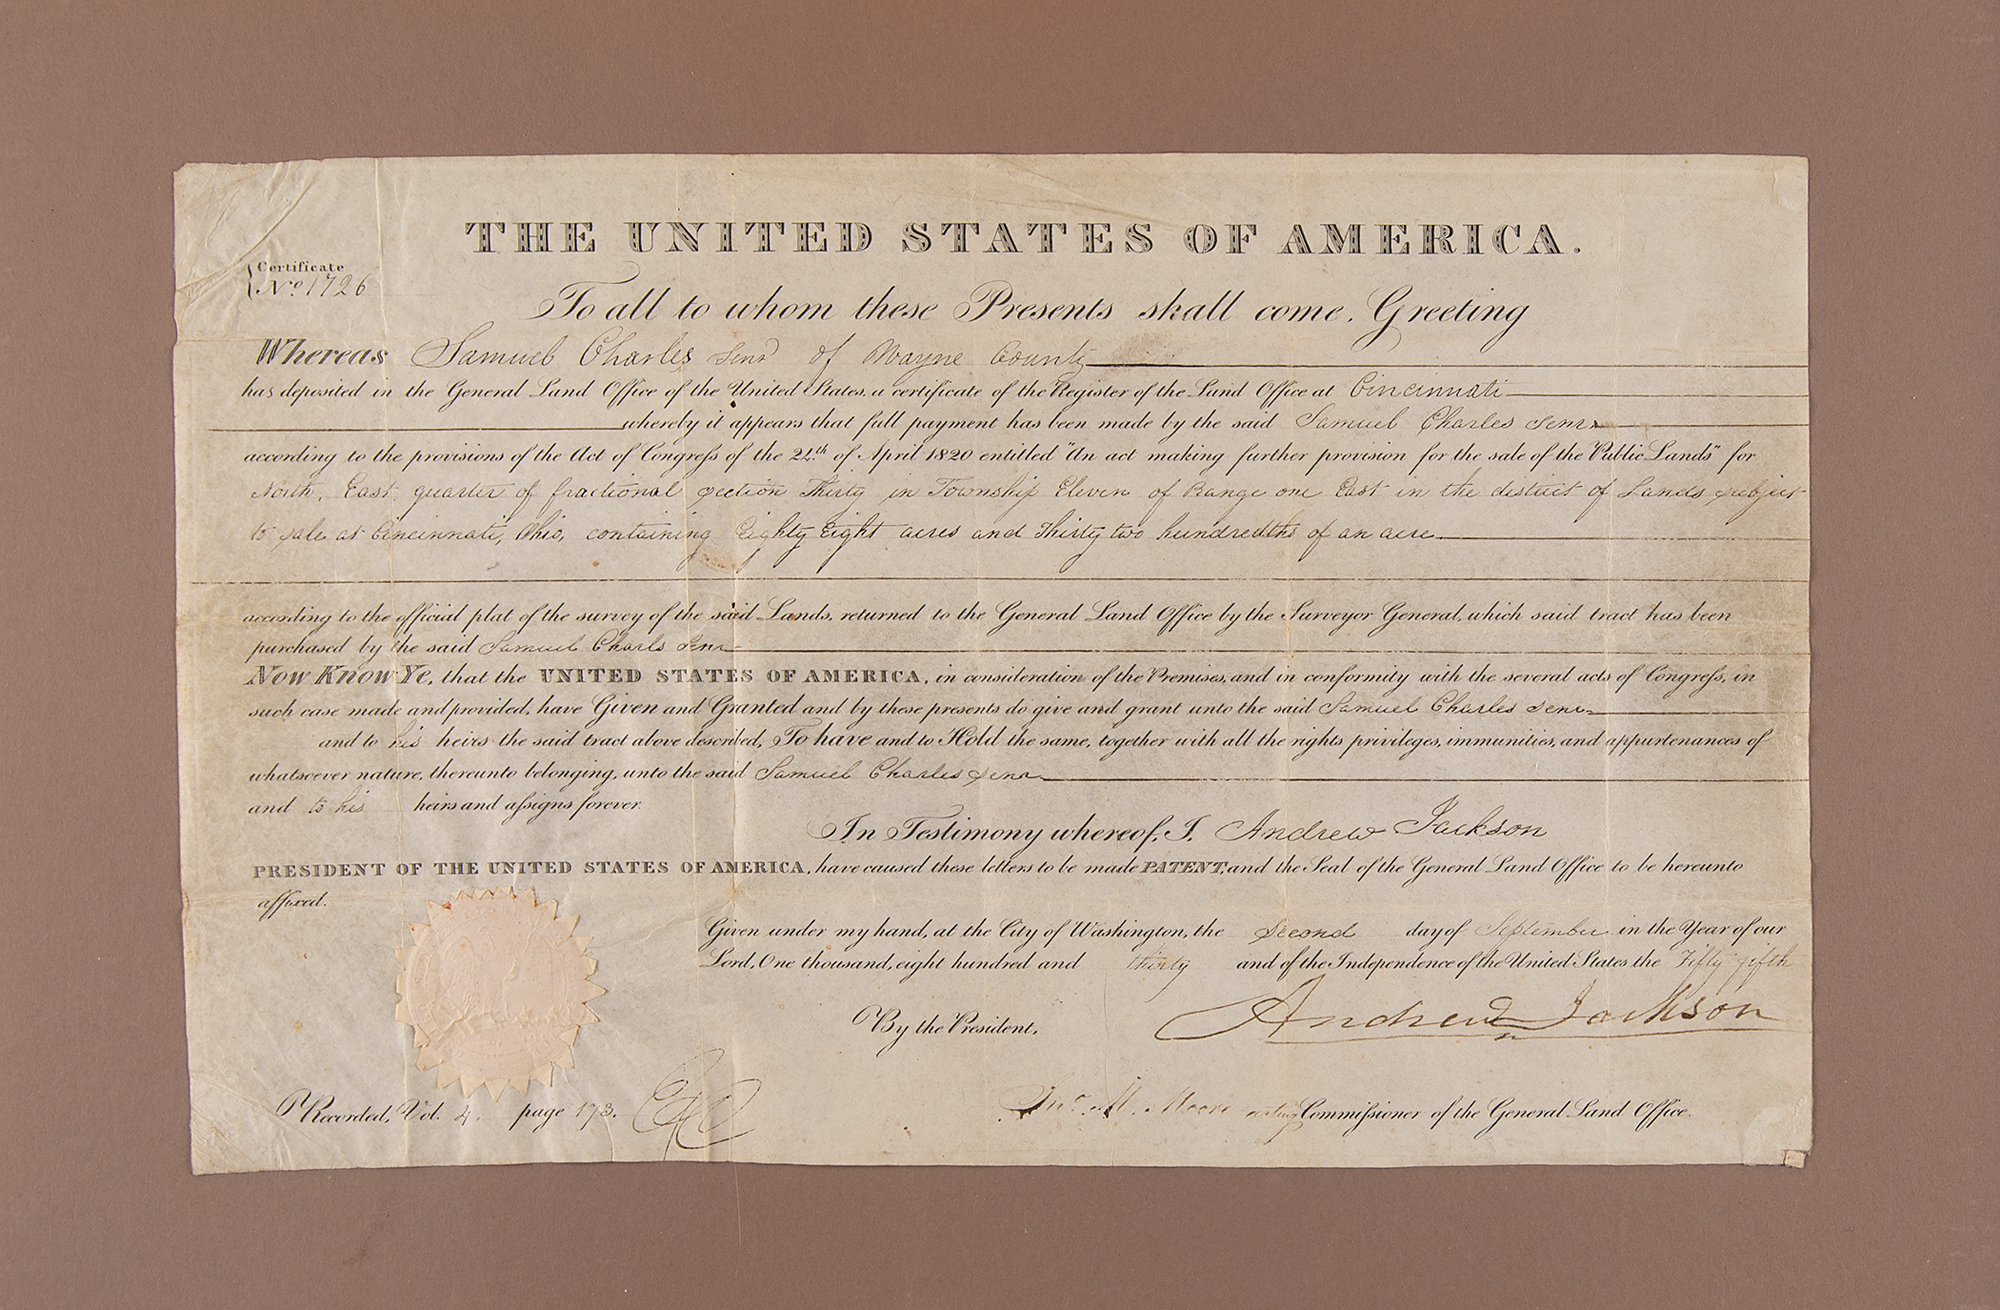 THE UNITED STATES OF AMERICA.
Certificate
No. 1726
To all to whom these Presents shall come, Greeting
Whereas Samuel Charles Senr of Wayne County
has deposited in the General Land Office of the United States, a certificate of the Register of the Land Office at Cincinnati
whereby it appears that full payment has been made by the said Samuel Charles Senr
according to the provisions of the Act of Congress of the 24th of April 1820 entitled "An act making further provision for the sale of the Public Lands" for
North, East, quarter of fractional section Thirty in Township Eleven of Range one East in the district of Lands subject
to sale at Cincinnati, Ohio, containing Eighty Eight acres and Thirty two hundredths of an acre
according to the official plat of the survey of the said Lands, returned to the General Land Office by the Surveyor General, which said tract has been
purchased by the said Samuel Charls Senr
Now Know Ye, that the UNITED STATES OF AMERICA, in consideration of the Premises, and in conformity with the several acts of Congress, in
such case made and provided, have Given and Granted and by these presents do give and grant unto the said Samuel Charles Senr
and to his heirs the said tract above described, To have and to Hold the same, together with all the rights privileges, immunities, and appurtenances of
whatsoever nature, thereunto belonging, unto the said Samuel Charles Senr
and to his heirs and assigns forever.
In Testimony whereof, I, Andrew Jackson
PRESIDENT OF THE UNITED STATES OF AMERICA, have caused these letters to be made PATENT, and the Seal of the General Land Office to be hereunto
affixed.
Given under my hand, at the City of Washington, the Second day of September in the Year of our
Lord, One thousand, eight hundred and thirty and of the Independence of the United States the Fifty fifth
By the President, Andrew Jackson
Recorded, Vol. 4. page 173. M. Moore acting Commissioner of the General Land Office.